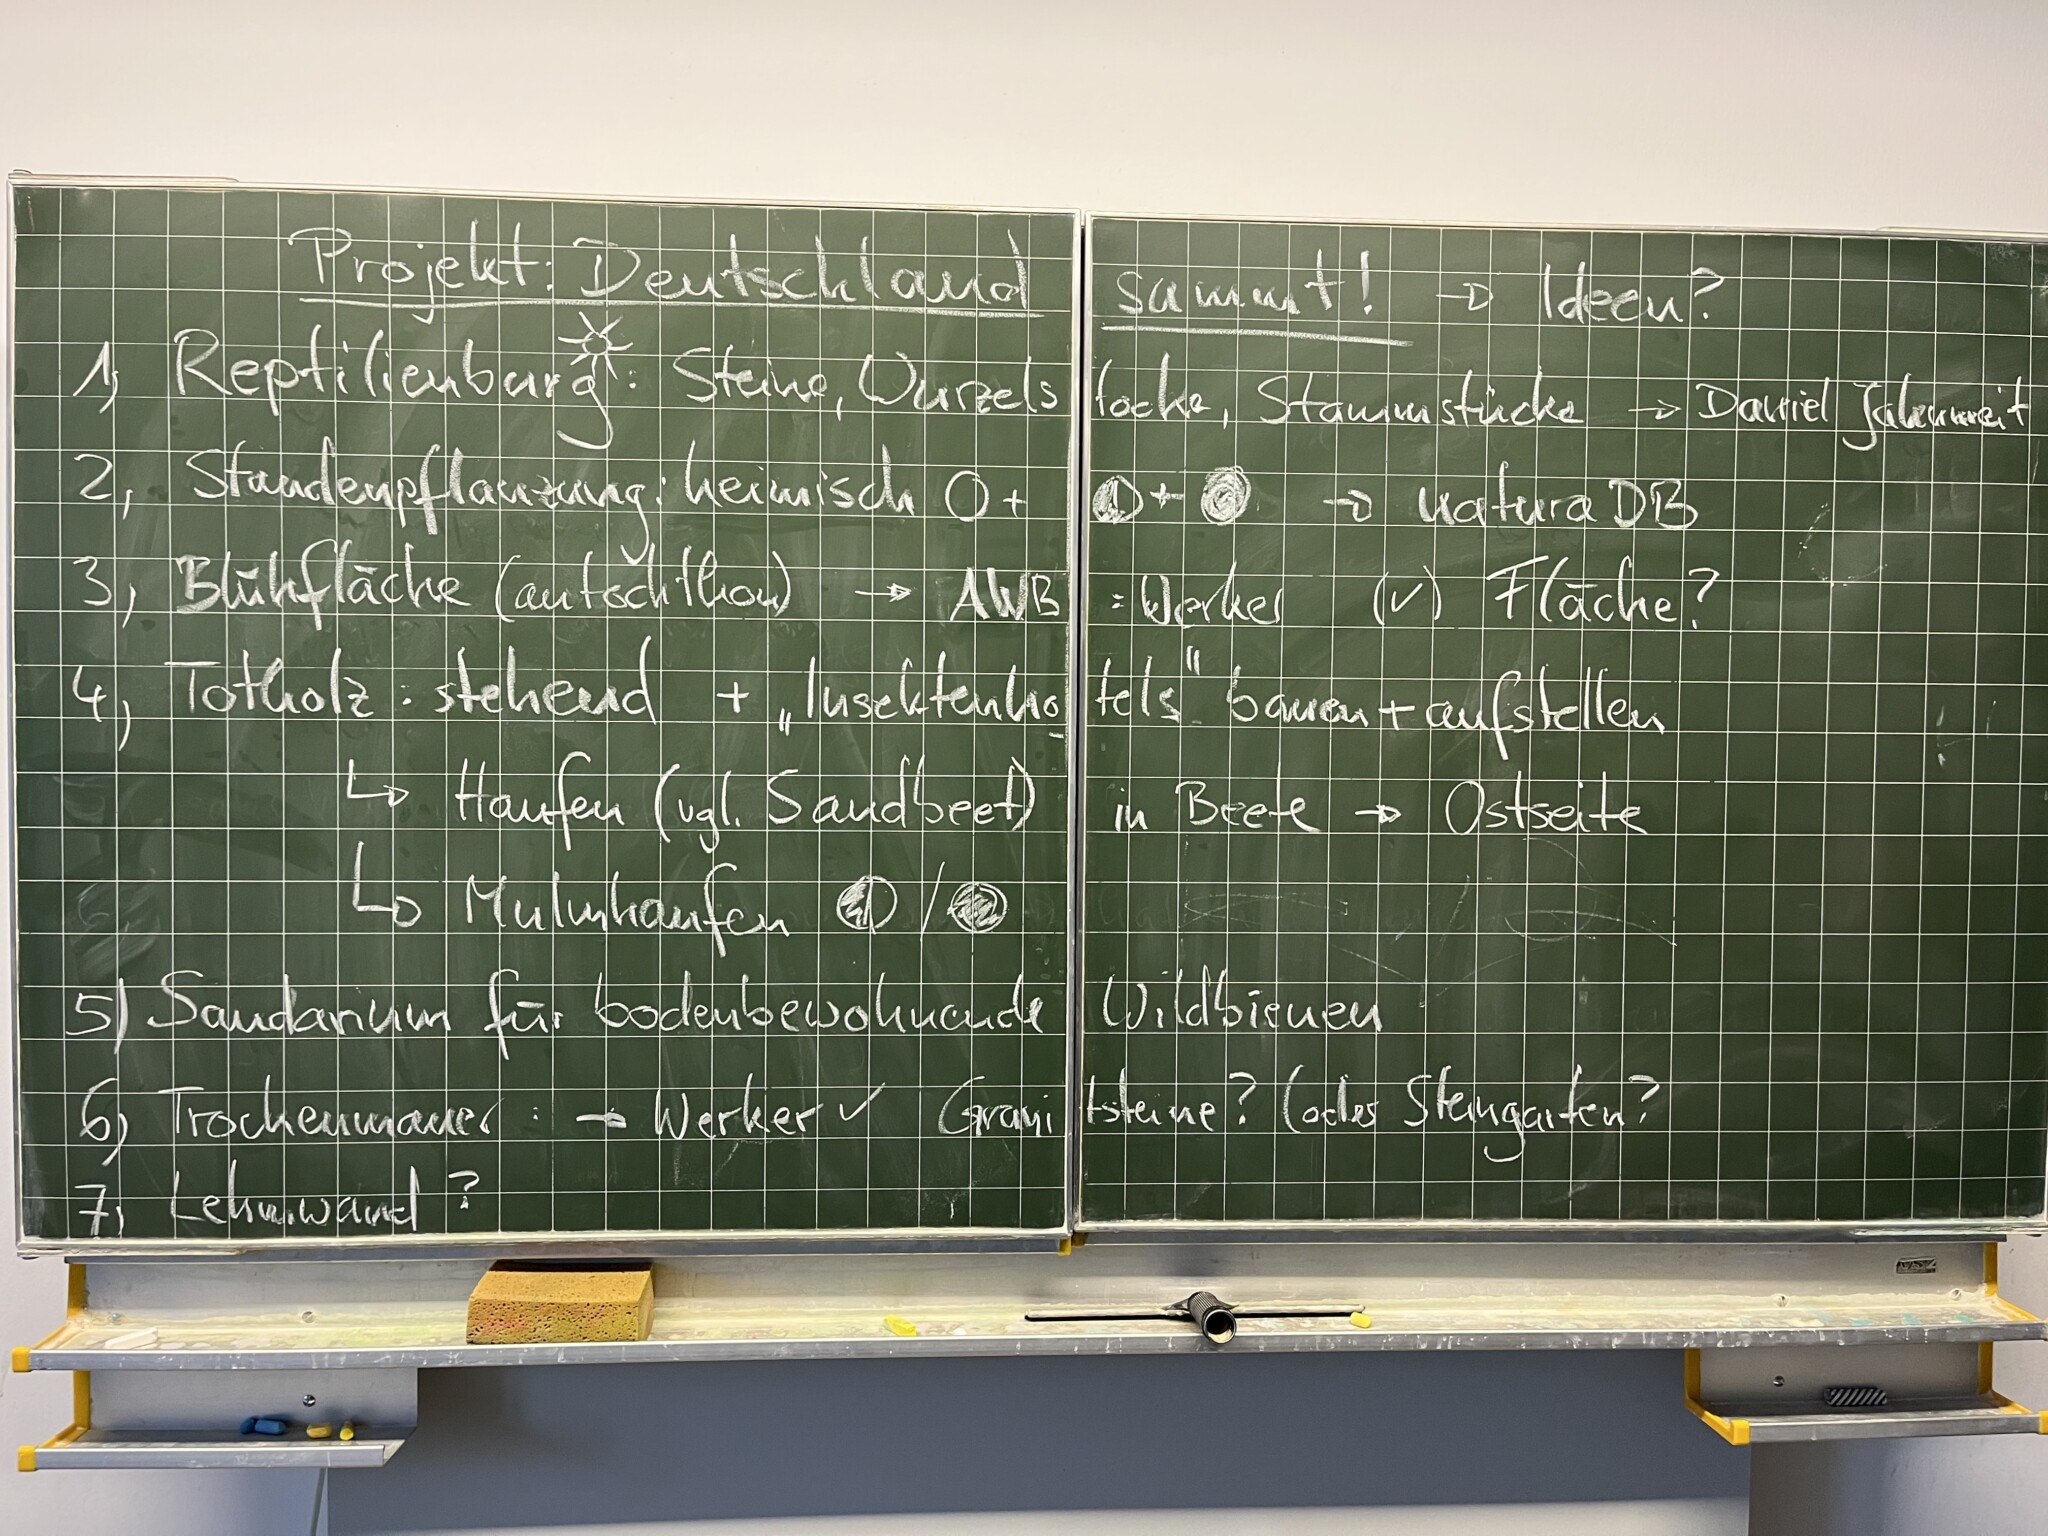 Projekt: Deutschland summt! → Ideen?
1, Reptilienburg: Steine, Wurzelstöcke, Stammstücke → Daniel
2, Staudenpflanzung: heimisch O + ◐ + ● → naturaDB
3, Blühfläche (autochthon) → AWB: Werker (✓) Fläche?
4, Totholz: stehend + „Insektenhotels" bauen + aufstellen
↳ Haufen (vgl. Sandbeet) in Beete → Ostseite
↳ Mulmhaufen ◐ / ●
5) Sandarium für bodenbewohnende Wildbienen
6) Trockenmauer: → Werker ✓ Granitsteine? (oder Steingarten?
7, Lehmwand?